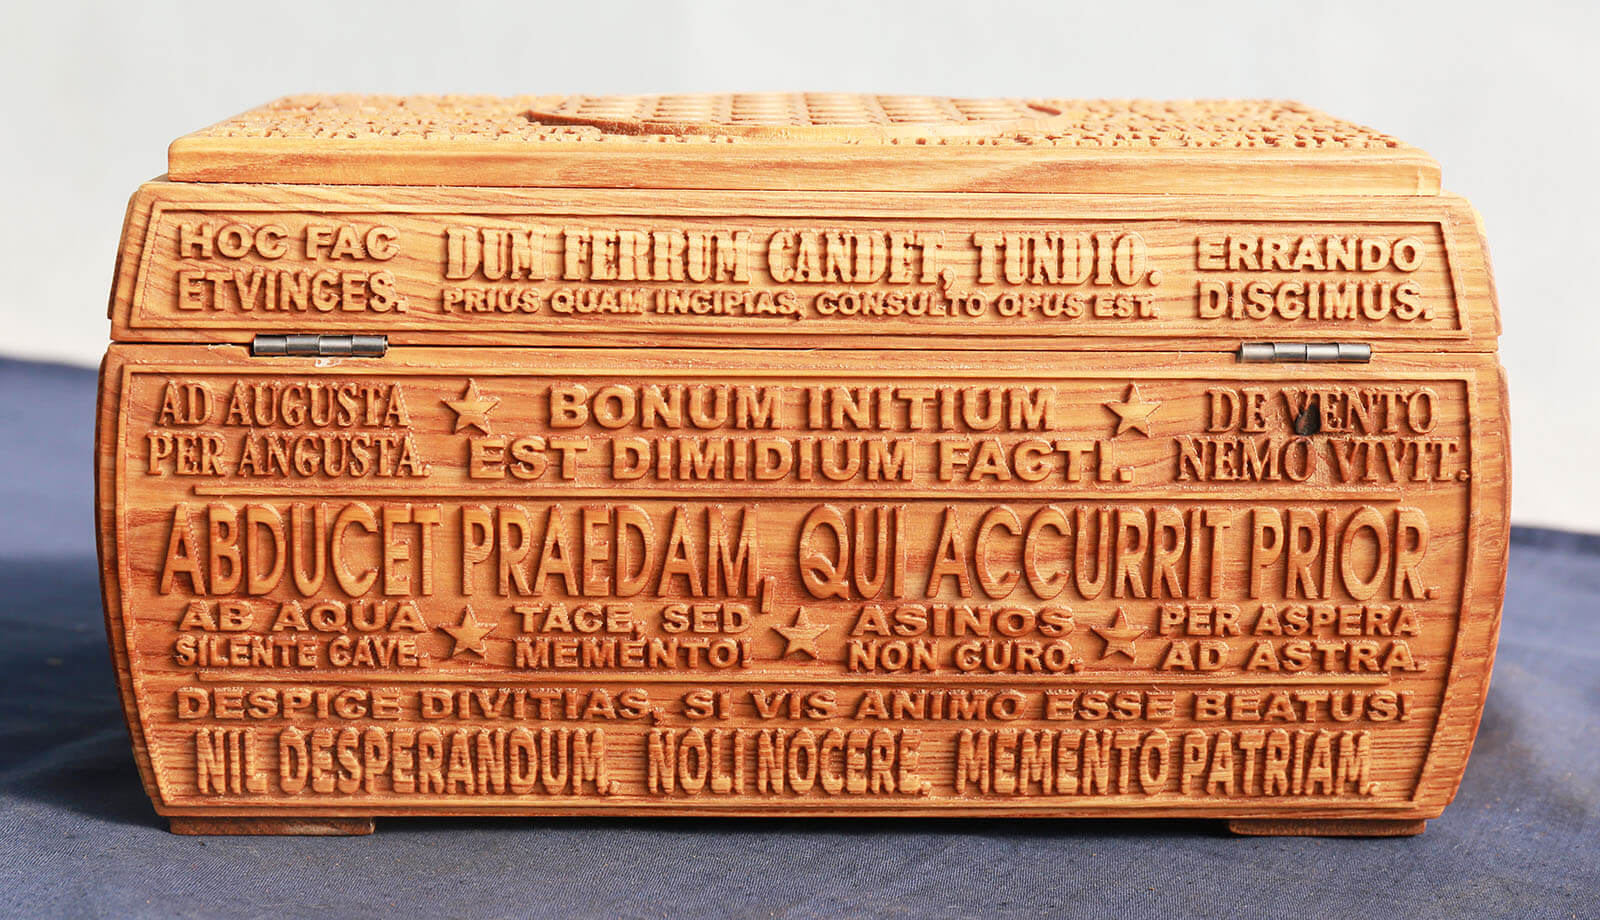 HOC FAC
ETVINCES.
DUM FERRUM CANDET, TUNDIO.
PRIUS QUAM INCIPIAS, CONSULTO OPUS EST.
ERRANDO
DISCIMUS.
AD AUGUSTA
PER ANGUSTA.
BONUM INITIUM
EST DIMIDIUM FACTI.
DE VENTO
NEMO VIVIT.
ABDUCET PRAEDAM, QUI ACCURRIT PRIOR.
AB AQUA
SILENTE CAVE.
TACE, SED
MEMENTO!
ASINOS
NON CURO.
PER ASPERA
AD ASTRA.
DESPICE DIVITIAS, SI VIS ANIMO ESSE BEATUS!
NIL DESPERANDUM. NOLI NOCERE. MEMENTO PATRIAM.